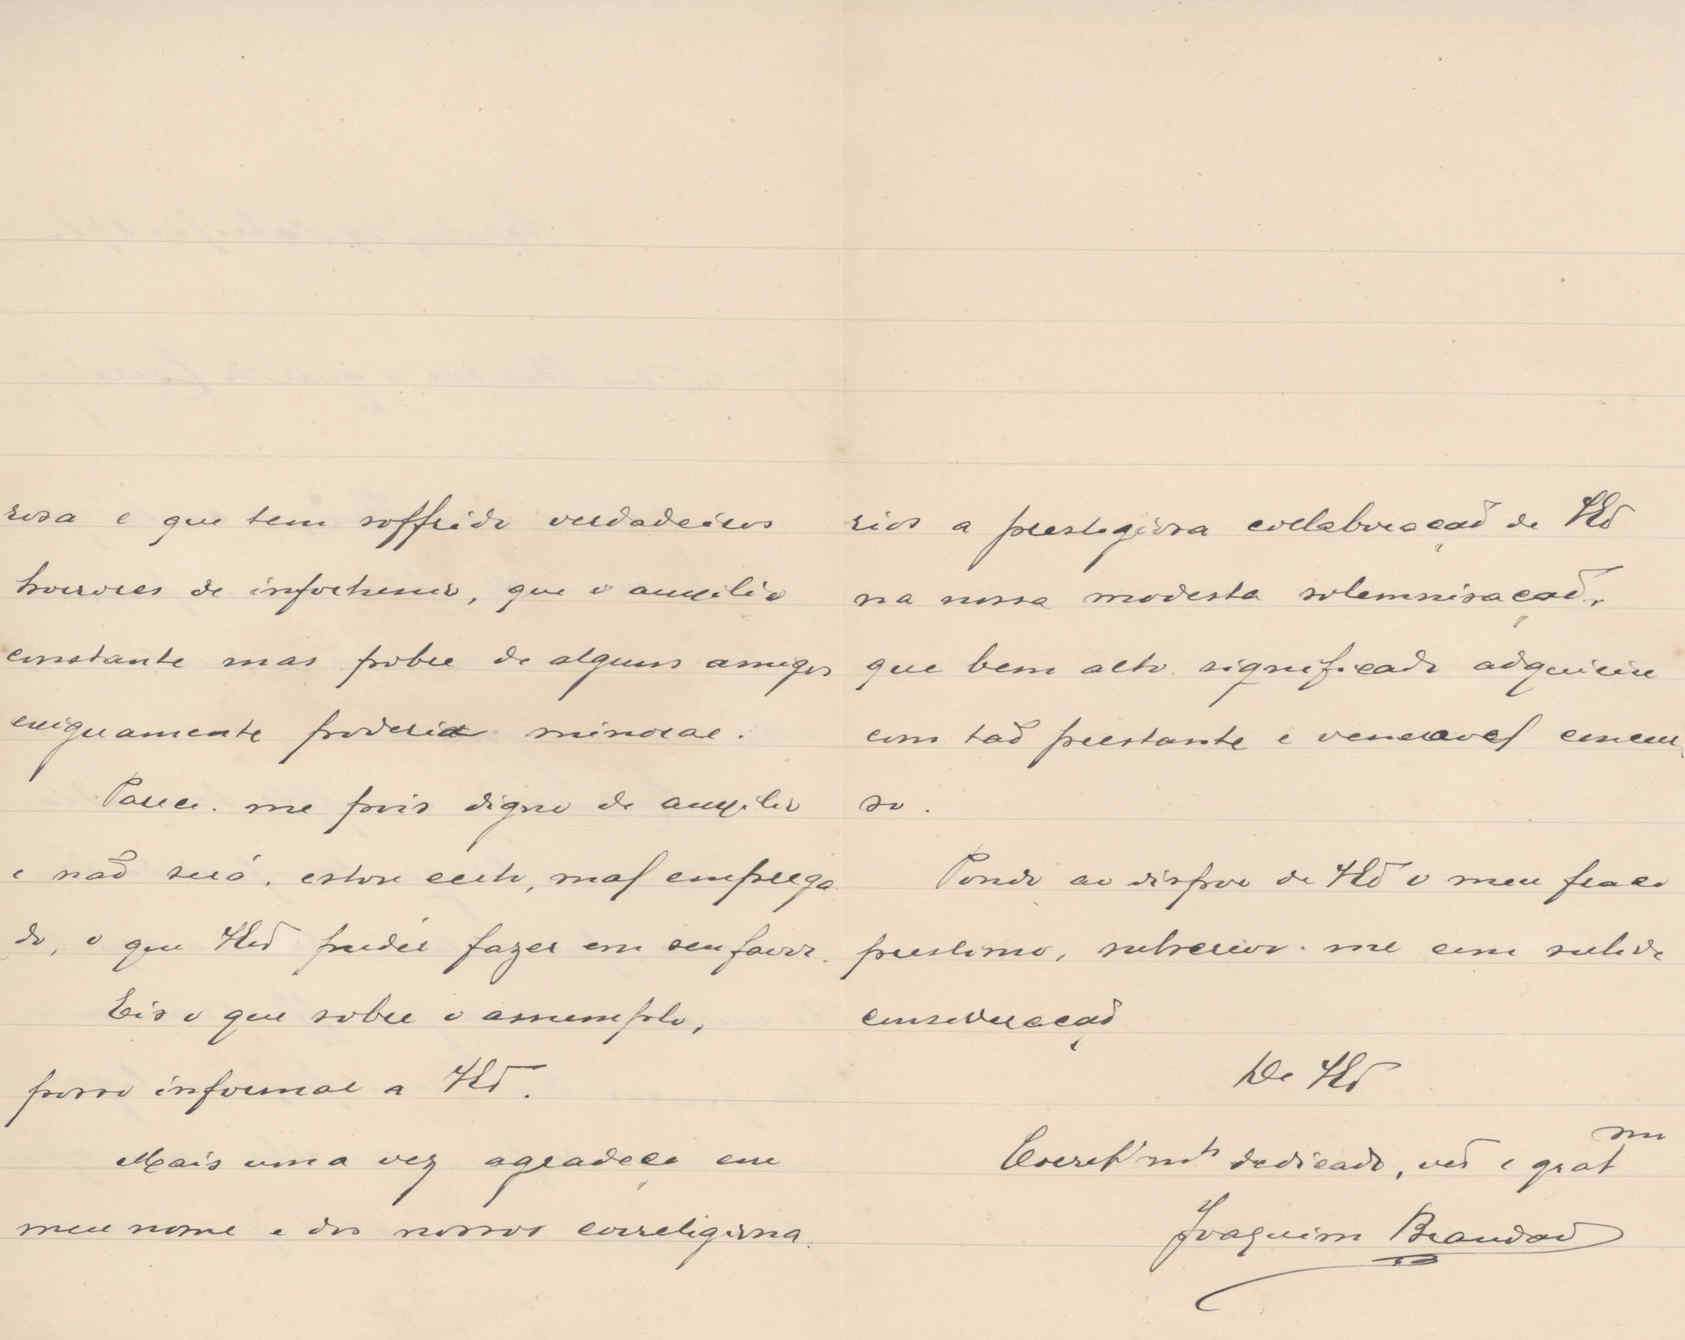 rosa e que tem soffrido verdadeiros
horrores de infortunio, que o auxilio
constante mas pobre de alguns amigos
exiguamente poderia minorar.
Parece-me pois digno de auxilio
e não será, estou certo, mal emprega-
do, o que VEx.ª pudér fazer em seu favor.
Eis o que sobre o assumpto,
posso informar a VEx.ª.
Mais uma vez agradeço em
meu nome e dos nossos correligiona-
rios a prestigiosa collaboração de VEx.ª
na nossa modesta solemnisação,
que bem alto significado adquiriu
com tão prestante e veneravel concur-
so.
Pondo ao dispor de VEx.ª o meu fraco
prestimo, subscrevo-me com subida
consideração
De VEx.ª
Correl.º m.to dedicado, ven.or e grat.mo
Joaquim Brandão